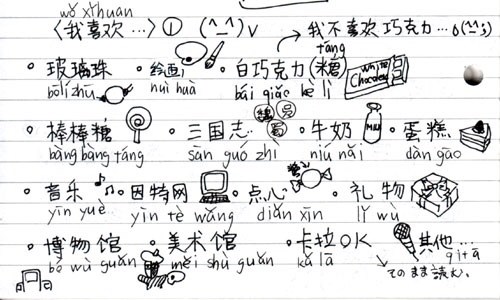 wǒ xǐhuan
〈我喜欢 …〉① (^_^)v → 我不喜欢巧克力…
táng
・玻璃珠 ・绘画 ・白巧克力(糖) White Chocolate
bōlí zhū huì huà bái qiǎo kè lì
・棒棒糖 ・三国志… 魏 吴 蜀 ・牛奶 MILK ・蛋糕
bàng bàng táng sān guó zhì niú nǎi dàn gāo
・音乐 ・因特网 ・点心 ・礼物
yīn yuè yīn tè wǎng diǎn xīn lǐ wù
・博物馆 ・美术馆 ・卡拉OK 其他…
bó wù guǎn měi shù guǎn kǎ lā qí tā